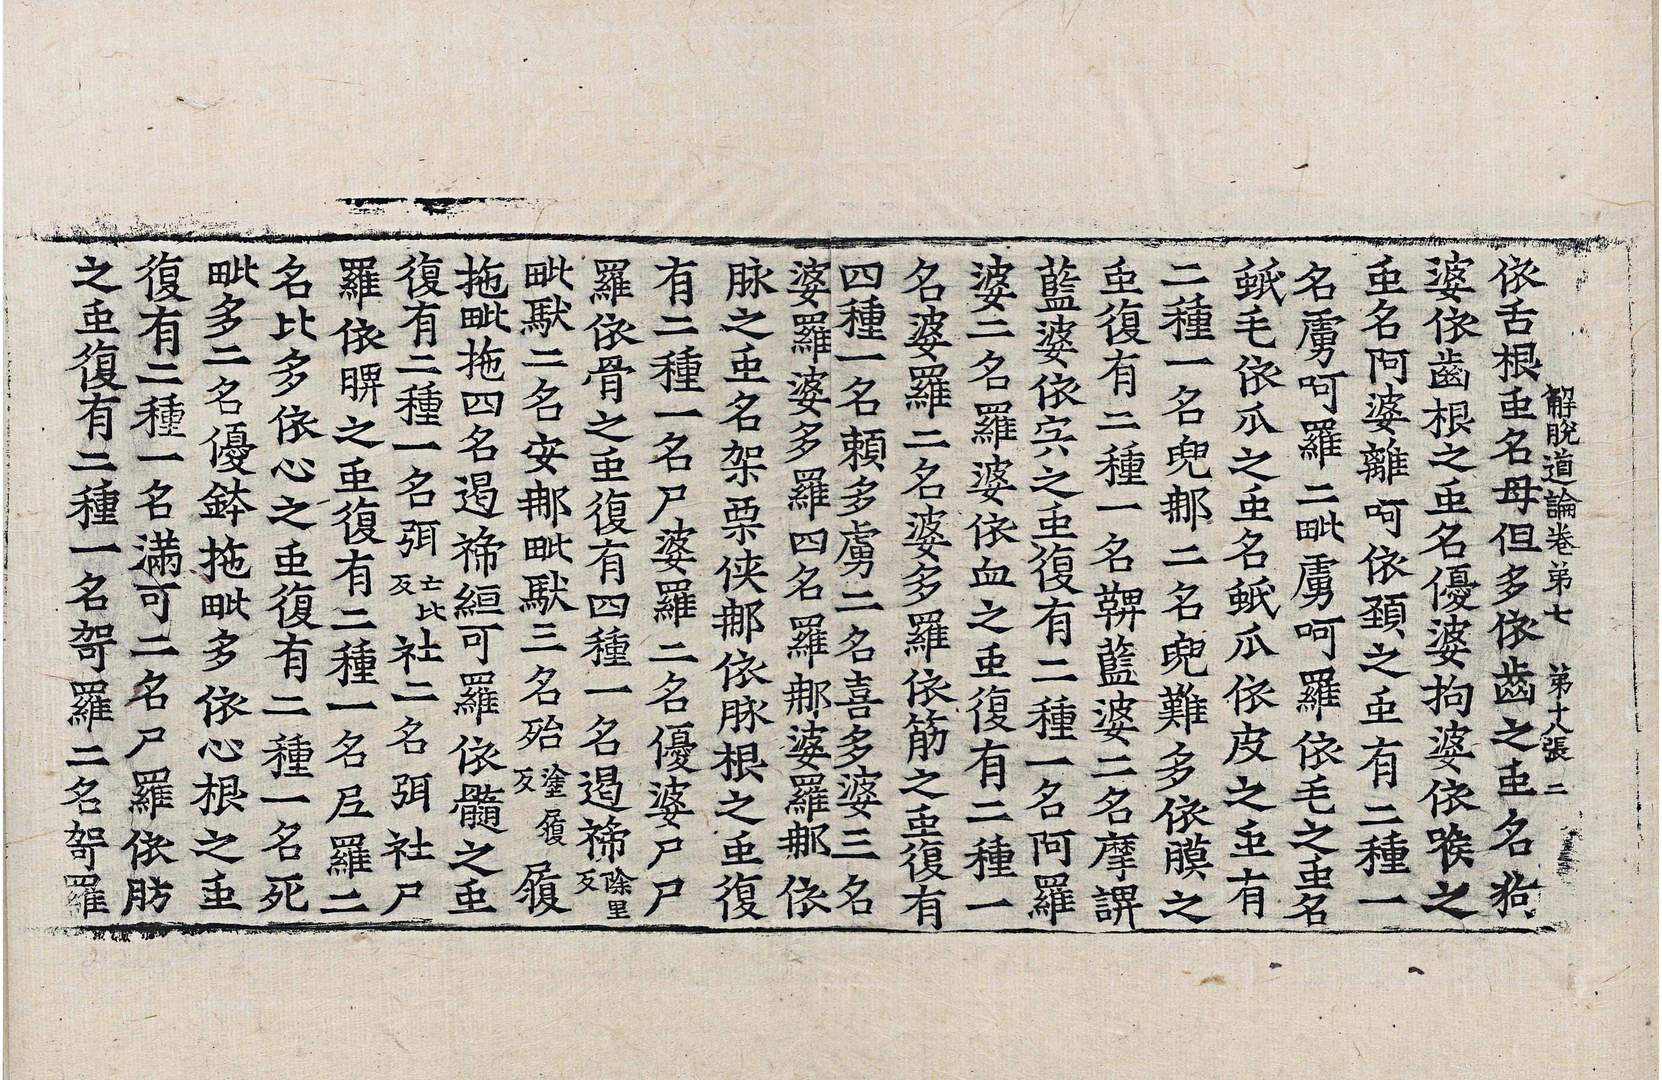 解脫道論卷第七 第十八張 二
依舌根䖝名母但多依齒之䖝名狗
婆依齒根之䖝名優婆拘婆依喉之
䖝名阿婆離呵依頚之䖝有二種一
名虜呵羅二毗虜呵羅依毛之䖝名
蚔毛依爪之䖝名蚔爪依皮之䖝有
二種一名兜那二名兜難多依膜之
䖝復有二種一名鞞藍婆二名摩謨
藍婆依宍之䖝復有二種一名阿羅
婆二名羅婆依血之䖝復有二種一
名婆羅二名婆多羅依筋之䖝復有
四種一名頼多虜二名喜多婆三名
婆羅婆多羅四名羅那婆羅那依
脉之䖝名架栗侠那依脉根之䖝復
有二種一名尸婆羅二名優婆尸尸
羅依骨之䖝復有四種一名遏褅除里反
毗馱二名安那毗馱三名殆塗履反履
拖毗拖四名遏褅絙可羅依髓之䖝
復有二種一名弭亡比反社二名弭社尸
羅依脾之䖝復有二種一名𡰱羅二
名比多依心之䖝復有二種一名死
毗多二名優鉢拖毗多依心根之䖝
復有二種一名満可二名尸羅依肪
之䖝復有二種一名哿羅二名哿羅